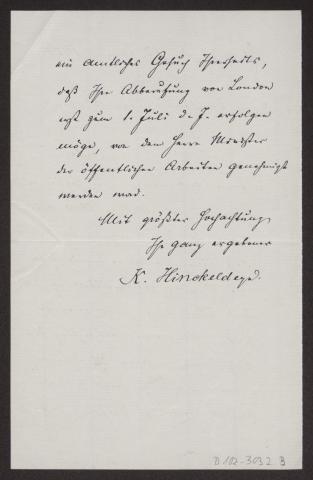 ein amtliches Gesuch Ihrerseits,
daß Ihre Abberufung von London
erst zum 1. Juli d. J. erfolgen
möge, von dem Herrn Minister
der öffentlichen Arbeiten genehmigt
werden wird.
Mit größter Hochachtung
Ihr ganz ergebener
K. Hinckeldeyn.
D 102-3032 B